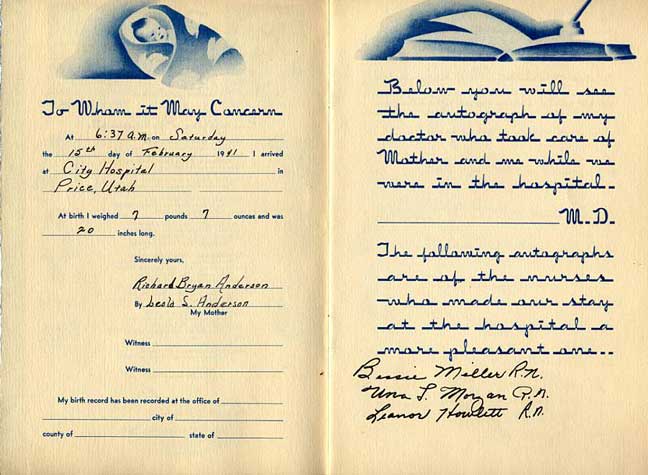 To Whom it May Concern
At 6:37 a.m. on Saturday
the 15th day of February 1941 I arrived
at City Hospital in
Price, Utah
At birth I weighed 7 pounds 7 ounces and was
20 inches long.
Sincerely yours,
Richard Bryan Anderson
By Leola S. Anderson
My Mother
Witness
Witness
My birth record has been recorded at the office of
city of
county of state of
Below you will see
the autograph of my
doctor who took care of
Mother and me while we
were in the hospital.
M.D.
The following autographs
are of the nurses
who made our stay
at the hospital a
more pleasant one..
Bessie Miller R.N.
Una L. Morgan R.N.
Leanor Howlett R.N.